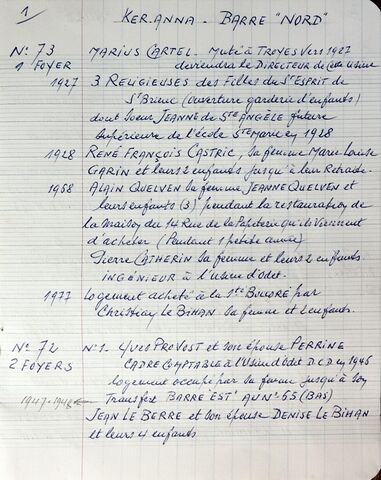 1
KER.ANNA - BARRE "NORD"
N° 73 MARIUS CARTEL. Muté à TROYES Vers 1927
1 FOYER deviendra le DIRECTEUR de cette usine
1927 3 RELIGIEUSES des Filles du St ESPRIT de
St Brieuc (ouverture garderie d'enfants)
dont Soeur JEANNE de Ste ANGÈLE future
Supérieure de l'école Ste Marie en 1928
1928 RENÉ FRANÇOIS CASTRIC, sa femme Marie Louise
GARIN et leurs 2 enfants jusqu'à leur Retraite.
1958 ALAIN QUELVEN sa femme JEANNE QUELVEN et
leurs enfants (3) pendant la restauration de
la Maison du 14 Rue de la Papeterie qu'ils Viennent
d'acheter (Pendant 1 petite année)
Pierre CATHERIN sa femme et leurs 2 enfants
INGÉNIEUR à l'Usine d'Odet.
1977 Logement acheté à la Sté BOLLORÉ par
Christian LE BIHAN sa femme et 2 enfants.
N° 72 N°1. YVES PROVOST et son épouse PERRINE
2 FOYERS CADRE COMPTABLE à l'Usine d'Odet D.C.D en 1946
logement occupé par sa femme jusqu'à son
1947-1948 ← Transfert BARRE EST' AU N° 65 (BAS)
JEAN LE BERRE et son épouse DENISE LE BIHAN
et leurs 4 enfants